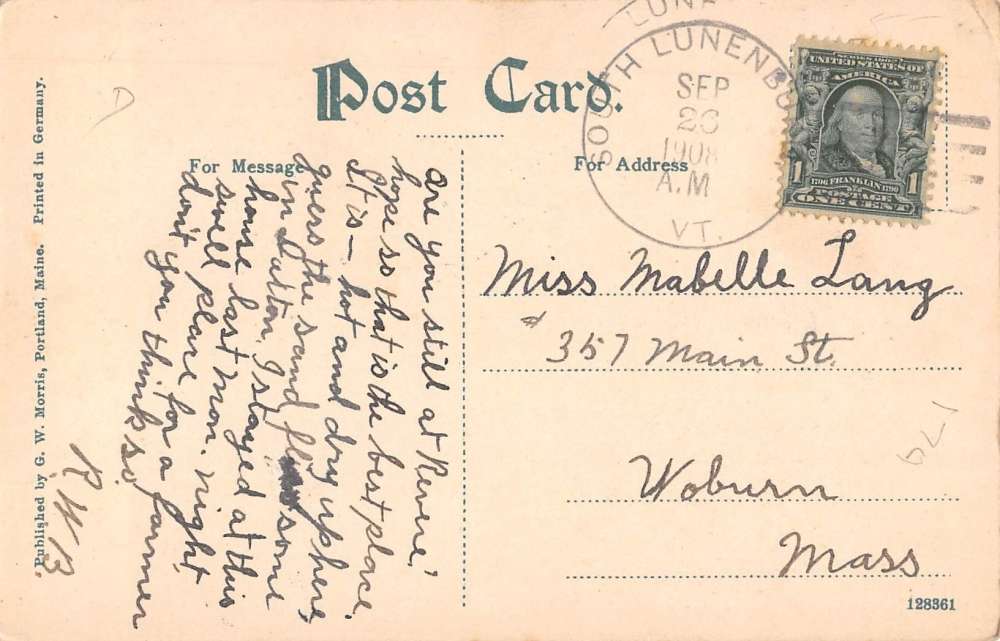 Post Card.
For Message
For Address
SOUTH LUNENBU
SEP
23
1908
A.M
VT.
LUNE
SERIES 1902
UNITED STATES OF
AMERICA
1706 FRANKLIN 1790
1 1
POSTAGE
ONE CENT
are you still at Revere,
hope so that is the best place.
It is – hot and dry up here,
guess the sand flies some
in I stayed at this
house last Mon. night,
swell place for a farmer
don't you think so.
R.W.B.
Miss Mabelle Lang
357 Main St.
Woburn
Mass
Published by G. W. Morris, Portland, Maine. Printed in Germany.
128361